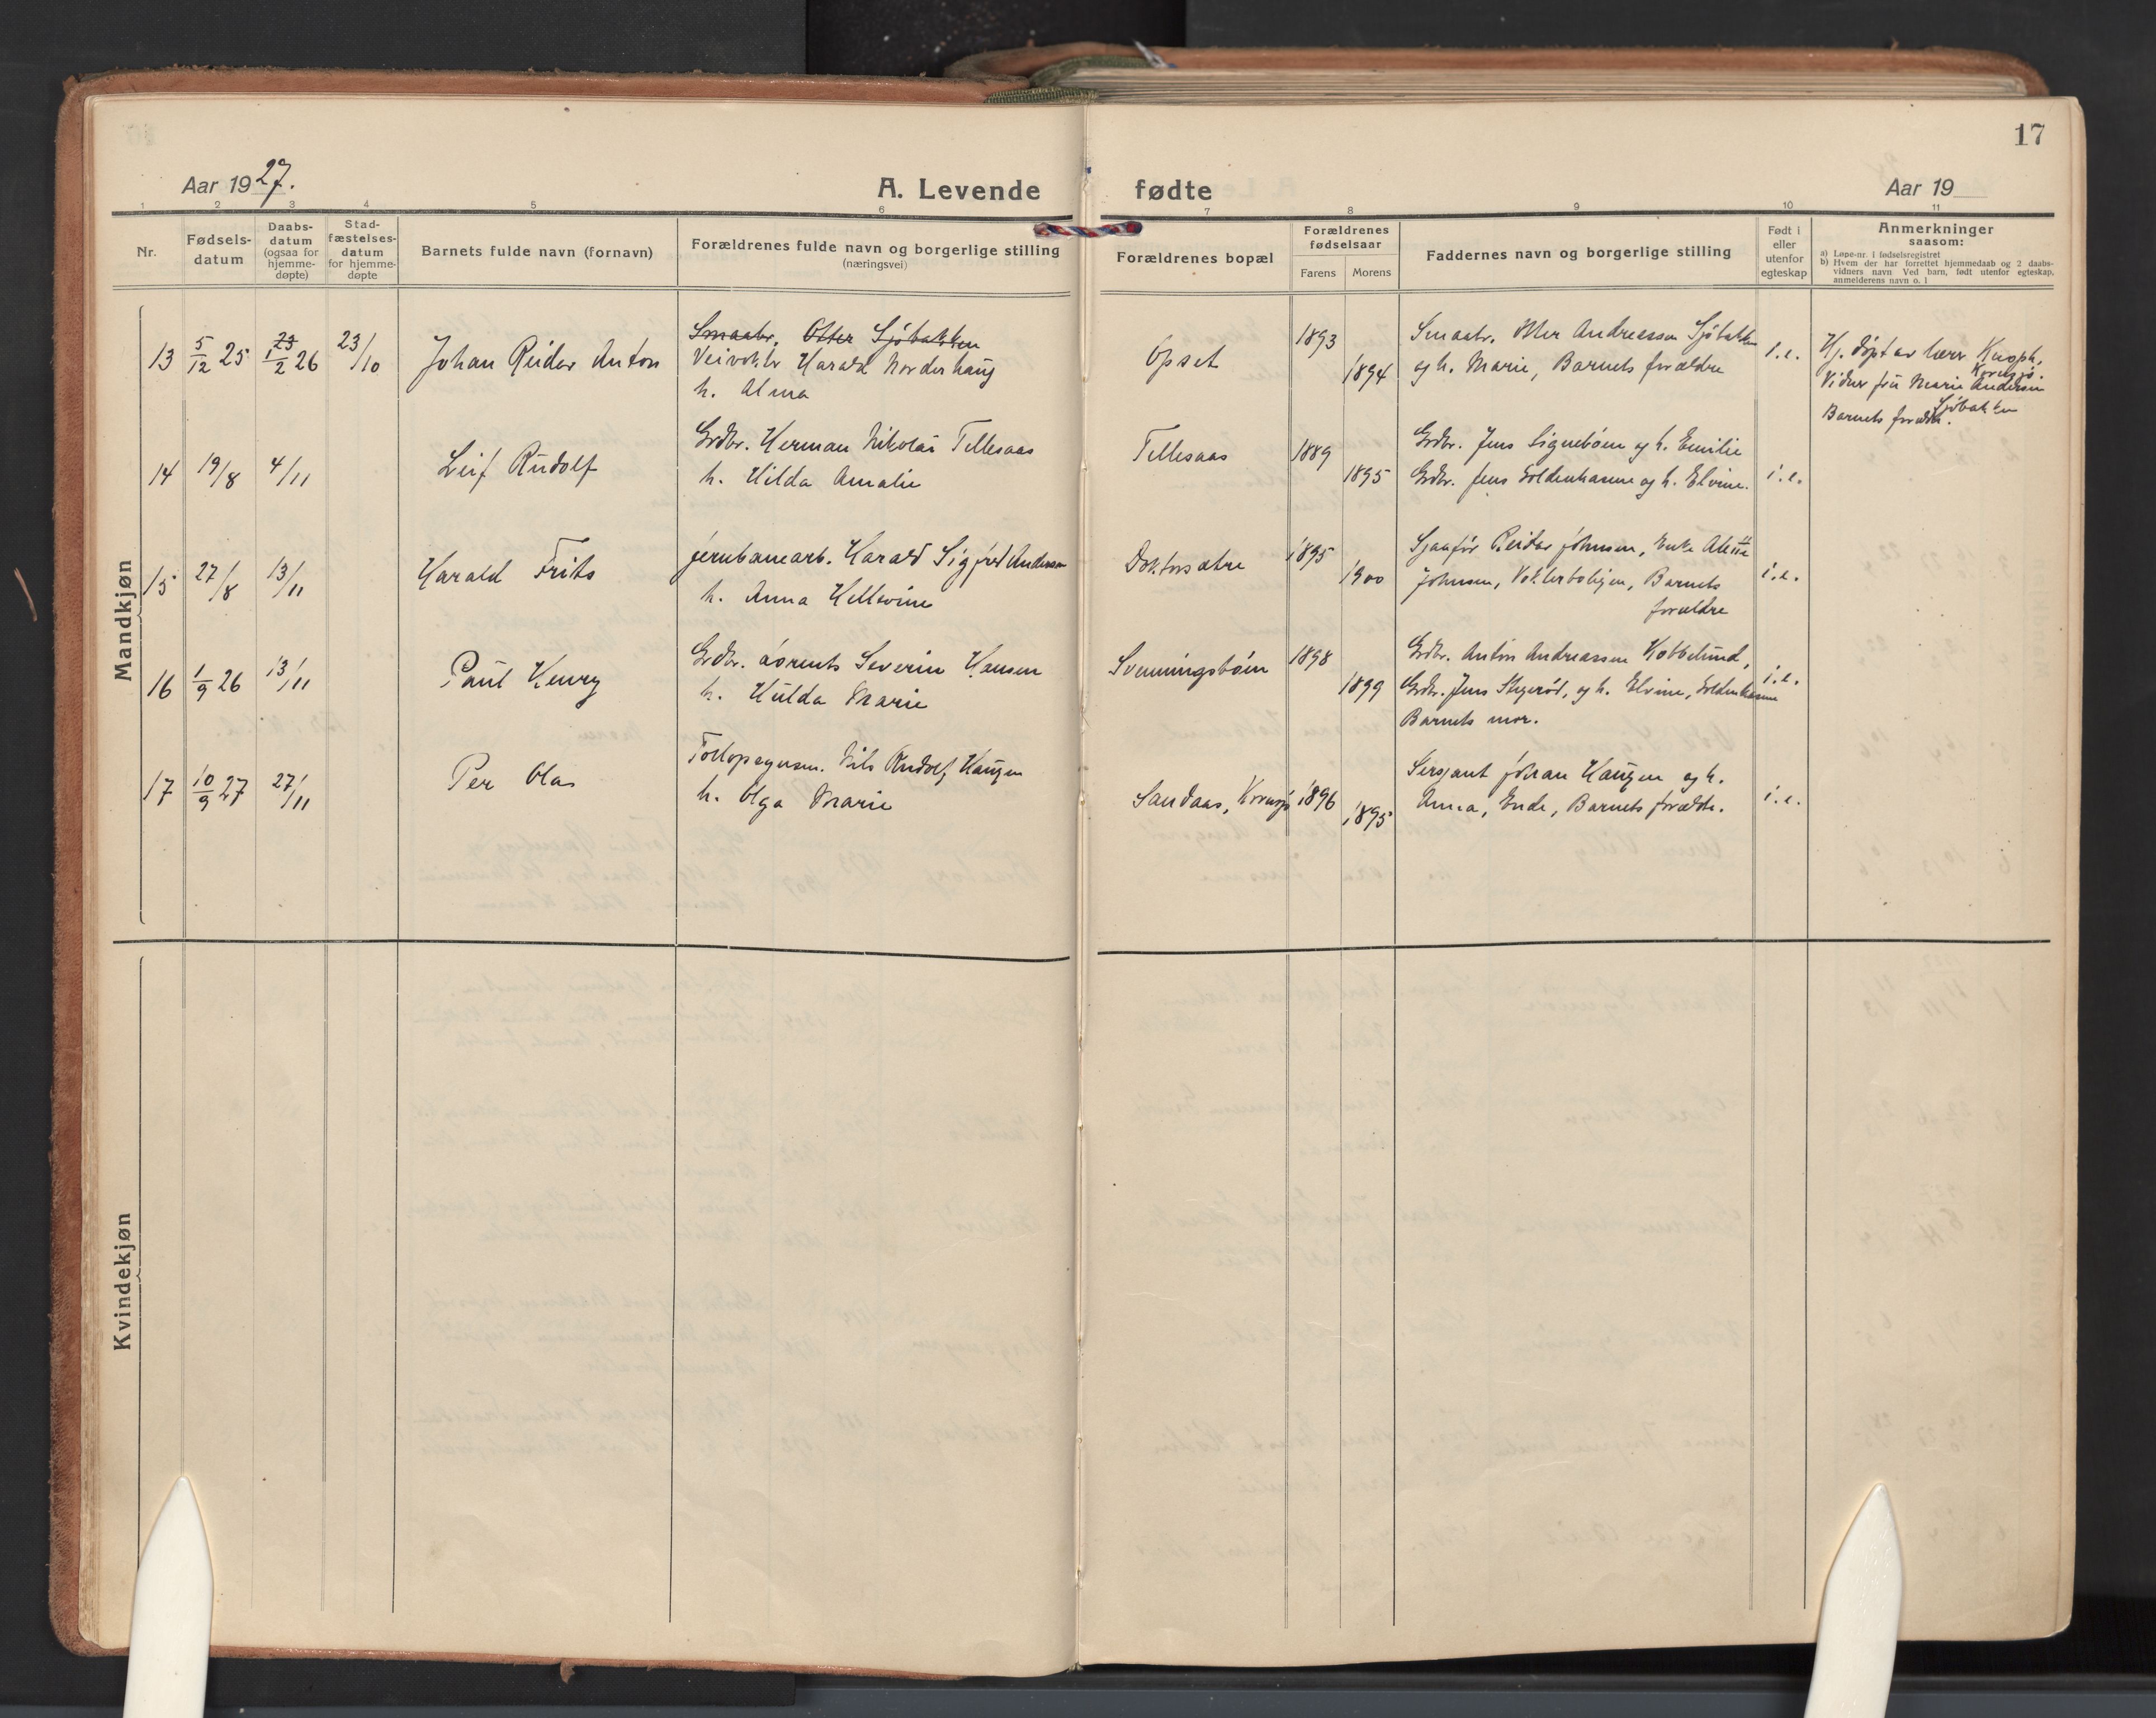 17
Aar 1927.
A. Levende fødte
Aar 19
1 2 3 4 5 6 7 8 9 10 11
Nr.
Fødsels-
datum
Daabs-
datum
(ogsaa for
hjemme-
døpte)
Stad-
fæstelses-
datum
for hjemme-
døpte
Barnets fulde navn (fornavn)
Forældrenes fulde navn og borgerlige stilling
(næringsvei)
Forældrenes bopæl
Forældrenes
fødselsaar
Farens
Morens
Faddernes navn og borgerlige stilling
Født i
eller
utenfor
egteskap
Anmerkninger
saasom:
a) Løpe-nr. i fødselsregistret
b) Hvem der har forrettet hjemmedaab og 2 daabs-
vidners navn Ved barn, født utenfor egteskap,
anmelderens navn o. l
Mandkjøn
13
5/12 25
23
1/2 26
23/10
Johan Reidar Anton
Smaabr. Otter Sjöbakken
Veivokter Harald Norderhaug
h. Alma
Opset
1893
1894
Smaabr. Otter Andreassen Sjöbakken
og h. Marie, Barnets forældre
i.e.
Hj. döpt av lærer
Kornsjö.
Vidner fru Marie Andersen
Sjöbakken
Barnets forældre.
14
19/8
4/11
Leif Rudolf
Grdbr. Herman Nikolai Tellesaas
h. Hilda Amalie
Tellesaas
1889
1895
Grdbr. Jens Signebøen og h. Emilie
Grdbr. Jens Holdenhasune og h. Elvine.
i.e.
15
27/8
13/11
Harald Frits
Jernbanearb. Harald Sigfred Andersen
h. Anna Hellevine
Doktorsætre
1895
1900
Sjaafør Reidar Johnsen, Enke Alette
Johnsen, Vokterboligen, Barnets
forældre
i.e.
16
1/9 26
13/11
Paul Henry
Grdbr. Lorents Severin Hansen
h. Hulda Marie
Svenningsbøen
1898
1899
Grdbr. Anton Andreassen Kobbelund,
Grdbr. Jens Skgerød, og h. Elvine, Holdenhasune
Barnets mor.
i.e.
17
10/9 27
27/11
Per Olas
Tollopsynsm. Nils Rudolf Haugen
h. Olga Marie
Sandaas, Kornsjø
1896
1895
Sersjant Johan Haugen og h.
Anna, Ende, Barnets forældre.
i.e.
Kvindekjøn